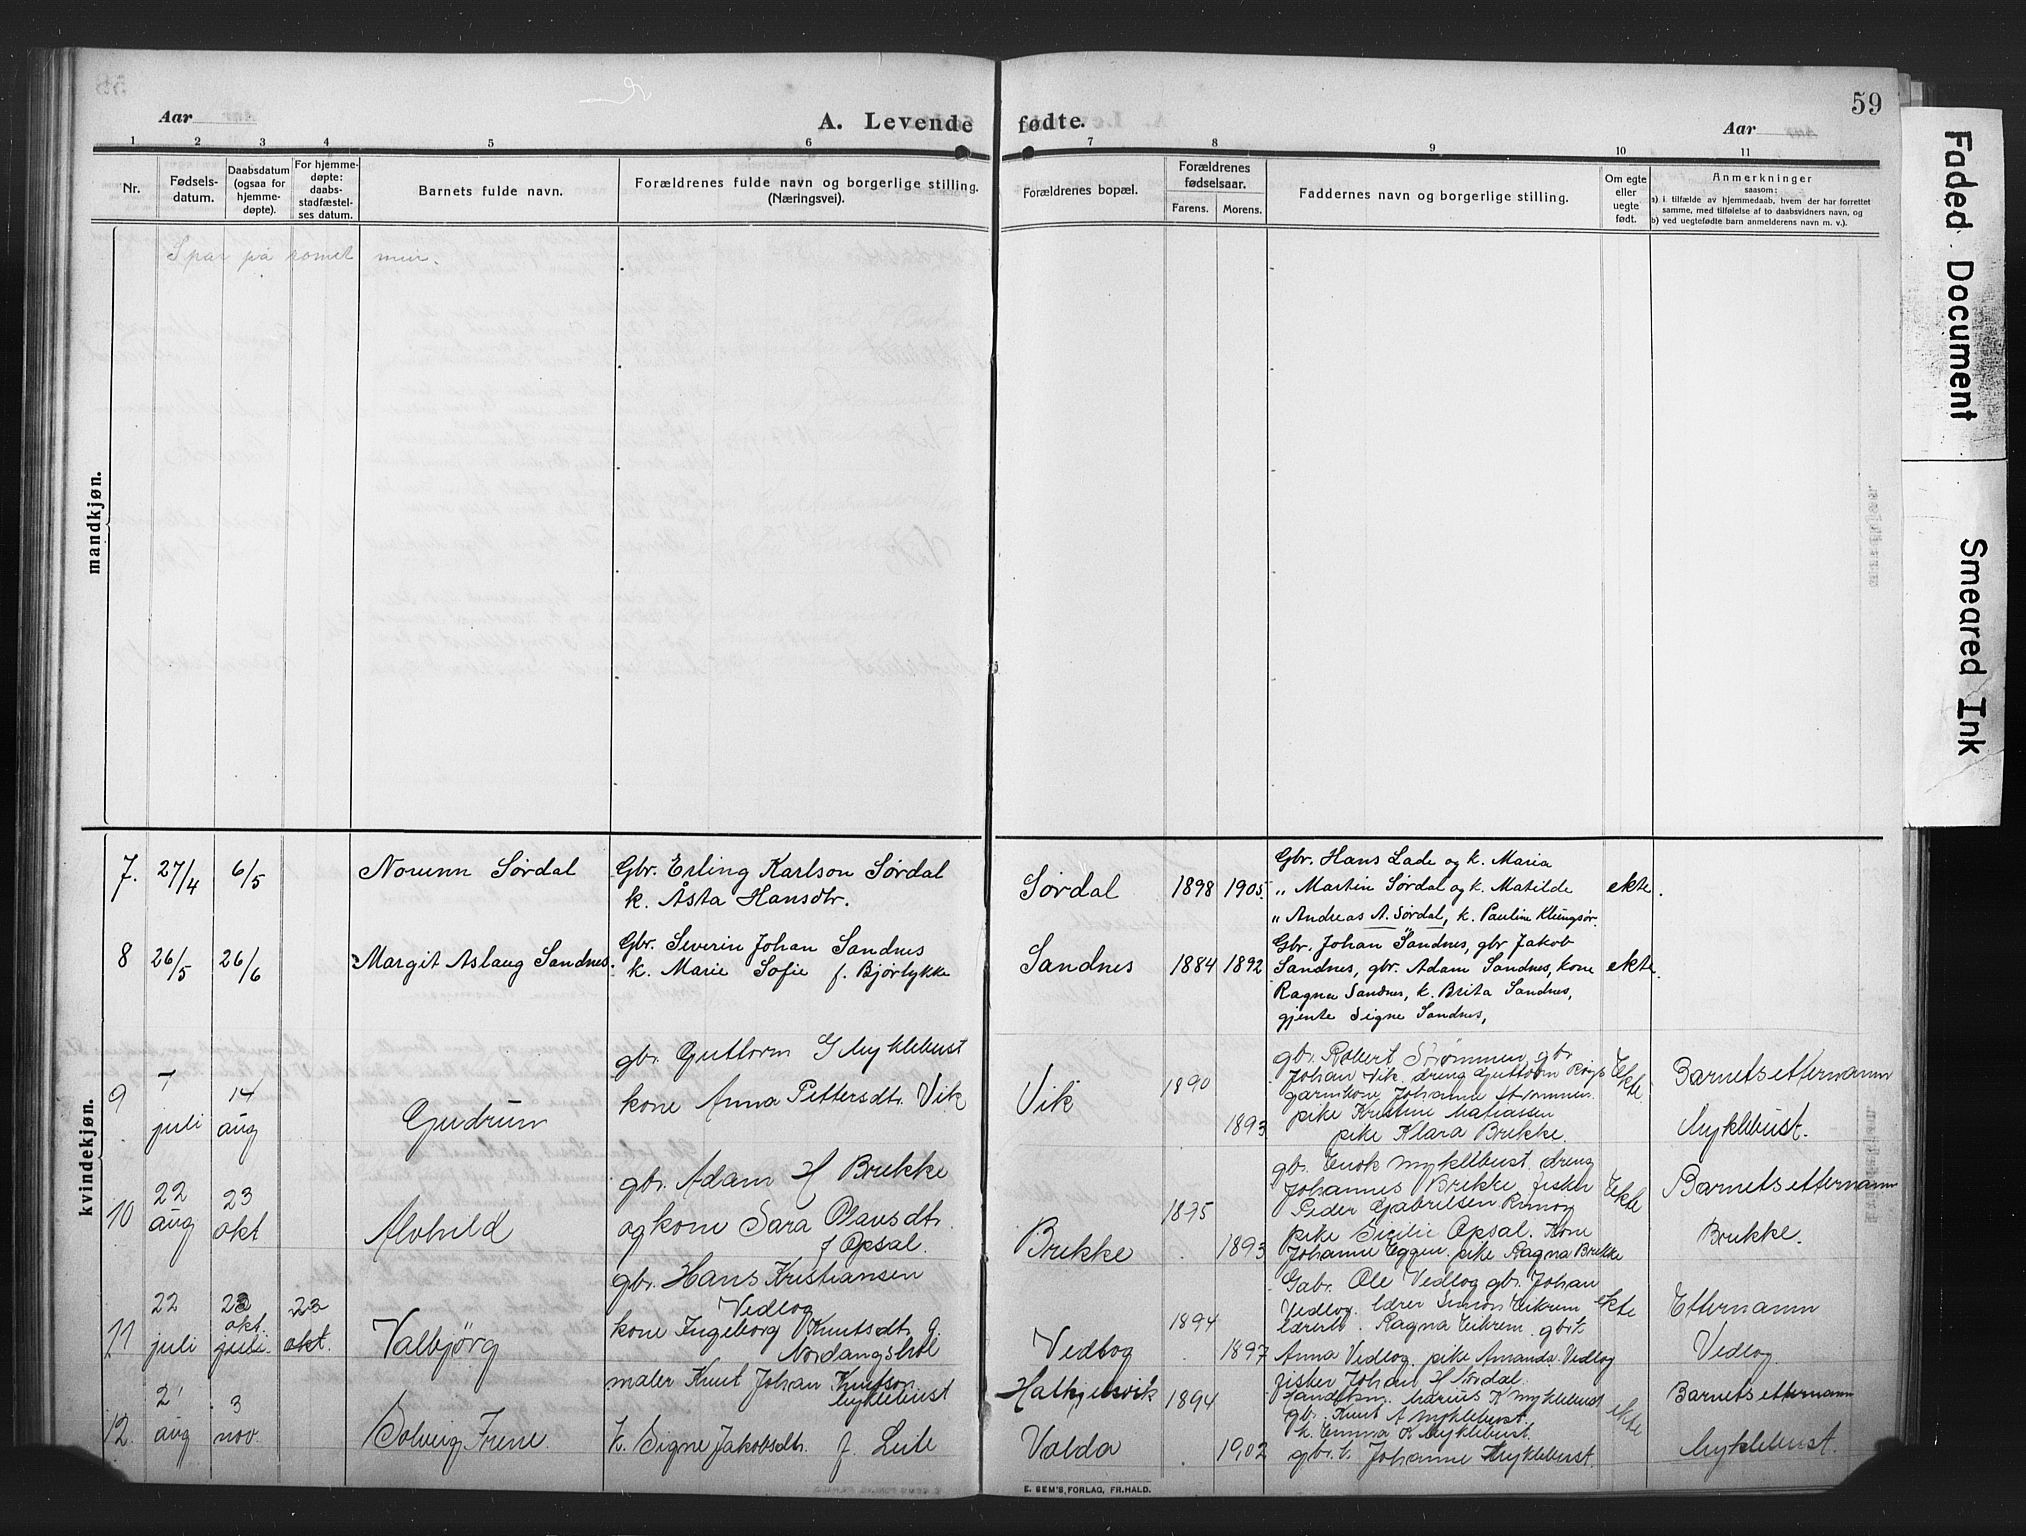 59
Aar
A. Levende fødte.
Aar
1 2 3 4 5 6 7 8 9 10 11
Nr.
Fødsels-
datum.
Daabsdatum
(ogsaa for
hjemme-
døpte).
For hjemme-
døpte:
daabs-
stadfæstel-
ses datum.
Barnets fulde navn.
Forældrenes fulde navn og borgerlige stilling.
(Næringsvei).
Forældrenes bopæl.
Forældrenes
fødselsaar.
Farens. Morens.
Faddernes navn og borgerlige stilling.
Om egte
eller
uegte
født.
Anmerkninger
saasom:
a) i tilfælde av hjemmedaab, hvem der har forrettet
samme, med tilføielse af to daabsvidners navn, og
b) ved uegtefødte barn anmelderens navn m. v.).
Faded Document
Smeared Ink
mandkjøn.
Spar på romet mun.
kvindekjøn.
7. 27/4 6/5
Norunn Sørdal
Gbr. Erling Karlson Sørdal
k. Åsta Hansdtr.
Sørdal
1898 1905.
Gbr. Hans Lade og k. Maria
" Martin Sørdal og k. Matilde
" Andreas A. Sørdal, k. Pauline Klungsør.
ekte.
8 26/5 26/6
Margit Aslaug Sandnes.
Gbr. Severin Johan Sandnes
k. Marie Sofie f. Bjørlykke
Sandnes
1884 1892
Gbr. Johan Sandnes, gbr Jakob
Sandnes, gbr. Adam Sandnes, kone
Ragna Sandnes, k. Brita Sandnes,
gjente Signe Sandnes,
ekte.
9
7
juli
14
aug
Gudrun
gbr. Guttorm G Myklebust
kone Anna Pettersdtr. Vik
Vik
1890
1893
gbr. Robert Strømmen, gbr
Johan Vik. dreng Guttorm
Johanne Strømmen.
pike Kristine Matiassen
pike Klara Brekke.
Ekte
Barnets etternamn
Myklebust.
10
22
aug
23
okt
Alvhild
gbr. Adam H Brekke
og kone Sara Olausdtr.
f Opsal.
Brekke
1895
1893
gbr. Enok Myklebust. dreng
Johannes Brekke. fisker
Peder Gabrielsen
pike Sicilie Opsal. Kone
Johanne Eggen. pike Ragna Brekke
Ekte
Barnets etternamn
Brekke.
11
22
juli
23
okt.
juli.
23
okt.
Valbjørg
gbr. Hans Kristiansen
Vedlog
kone Ingeborg Knutsdtr. f.
Nordangshol
Vedlog
1894
1897
Gabr. Ole Vedlog gbr. Johan
Vedlog. lærer Simon Eikrem
Ragna Eikrem. gbrk
Anna Vedlog. pike Amanda Vedlog
ekte
Etternamn
Vedlog
12.
2
aug
3
nov.
Solveig Irene.
maler Knut Johan Knutson
Myklebust
k. Signe Jakobsdtr. f. Leite
Halkjelsvik
Volda
1894
1902
fisker Johan H Sørdal.
Handelsm. Marius K Myklebust
gbr. Knut A Myklebust.
k. Emma K Myklebust.
gbr. k. Johanne Myklebust.
ekte
Barnets etternamn
Myklebust.
E. SEM'S, FORLAG, FR.HALD.